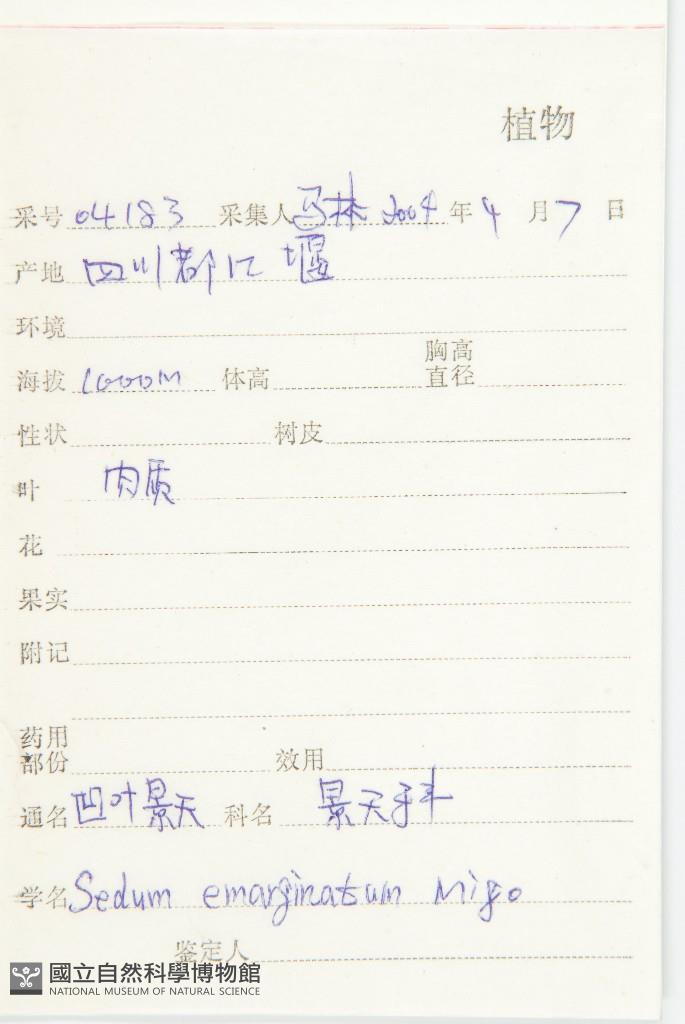 植物
采号 04183 采集人 马林 2004 年 4 月 7 日
产地 四川都江堰
环境
海拔 1000M 体高 胸高直径
性状 树皮
叶 肉质
花
果实
附记
药用部份 效用
通名 凹叶景天 科名 景天科
学名 Sedum emarginatum Migo
鉴定人
國立自然科學博物館
NATIONAL MUSEUM OF NATURAL SCIENCE